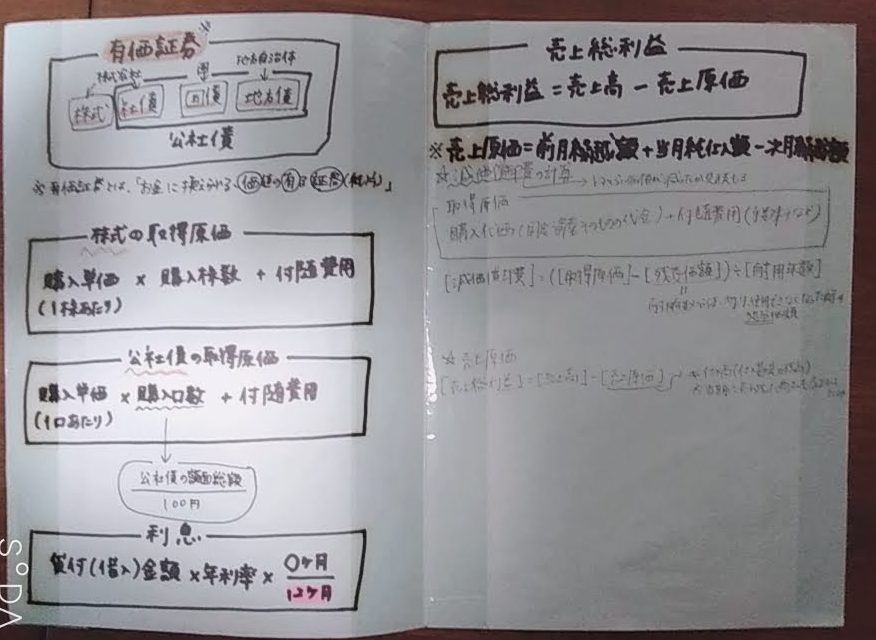 有価証券※
株式会社 国 地方自治体
株式 社債 国債 地方債
公社債
※有価証券とは、「お金に換えられる、価値の有る証券(紙きれ)」
株式の取得原価
購入単価 × 購入株数 + 付随費用
(1株あたり)
公社債の取得原価
購入単価 × 購入口数 + 付随費用
(1口あたり)
公社債の額面総額
100円
利息
貸付(借入)金額 × 年利率 × 〇ヶ月
12ヶ月
売上総利益
売上総利益 = 売上高 − 売上原価
※売上原価=前月繰越額+当月純仕入額−次月繰越額
☆減価償却費の計算
取得原価
購入代価(固定資産そのものの代金)+付随費用(手数料など)
[減価償却費]=([取得原価]−[残存価額])÷[耐用年数]
☆売上原価
[売上総利益]=[売上高]−[売上原価]
S°DA